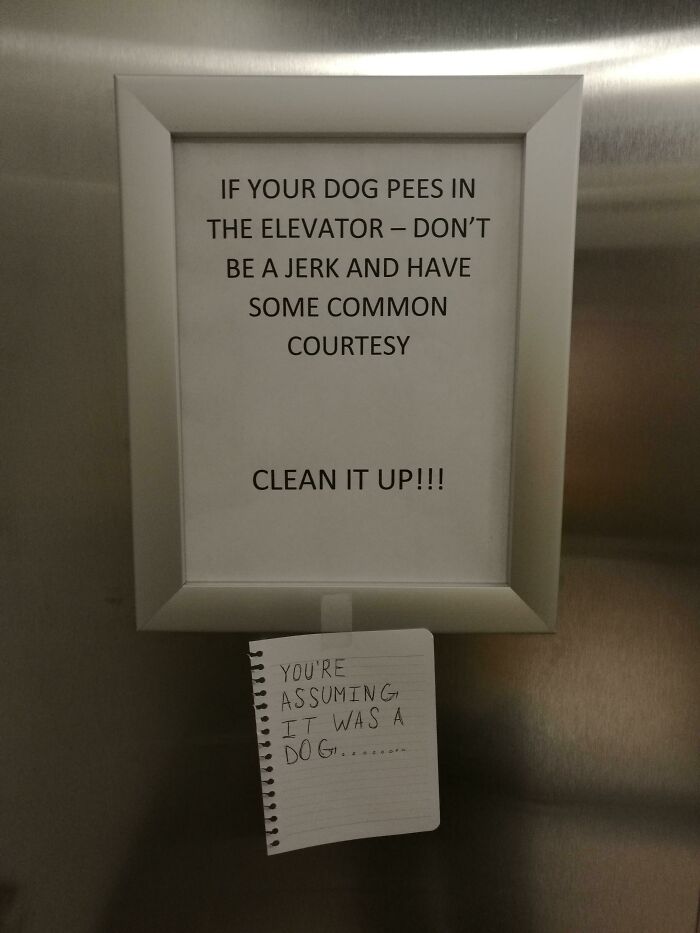 IF YOUR DOG PEES IN
THE ELEVATOR – DON'T
BE A JERK AND HAVE
SOME COMMON
COURTESY
CLEAN IT UP!!!
YOU'RE
ASSUMING
IT WAS A
DOG........